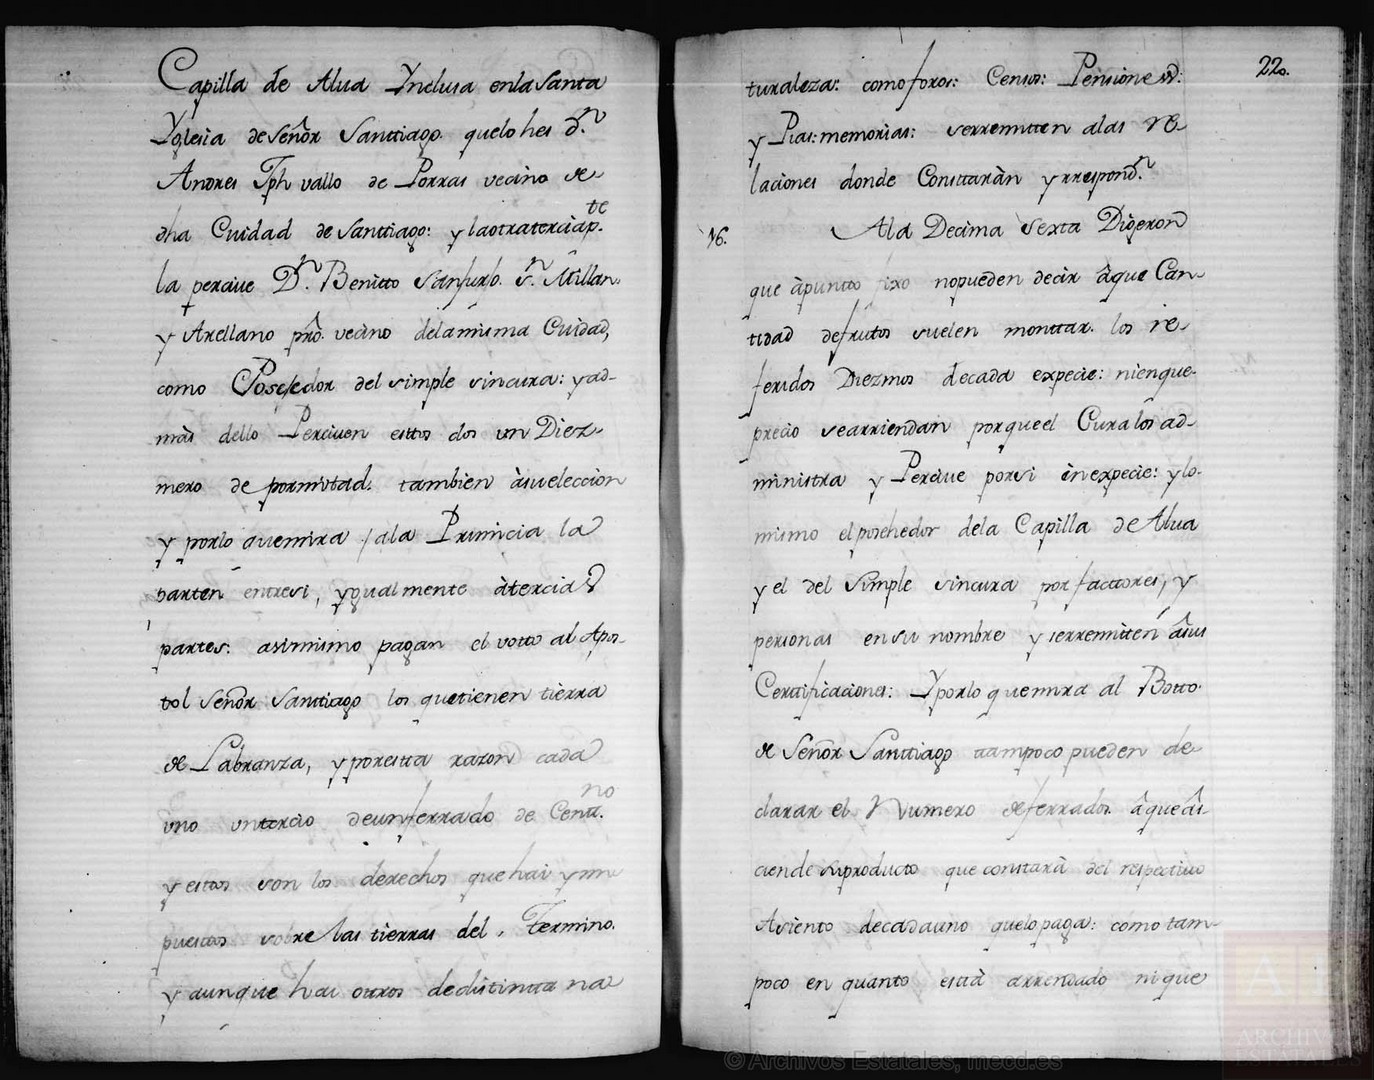 Capilla de Alua Ynclusa enla Santa
Yglesia de Señor Santtiago. quelo hes dn.
Andres Jph vallo de Porras vecino de
dha Cuidad de Santtiago: y laotraterciàpte.
la perciue Dn. Benitto Sanjurlo. Sn. Millan
y Arellano pro. vecino delamisma Cuidad,
como Posehedor del simple sincura: y ad-
màs dello Perciuen esttos dos un Diez-
mero de pormitad. tambien àsueleccion
y porlo quemira ala Primicia la
parten entresi, yגualmente àtercias
partes: asimismo pagan el votto al Apos-
tol Señor Santtiago los quetienen tièrra
de Labranza, y porestta razon cada
vno vntercio deunferrado de Centtno.
y esttos son los derechos que hai ym
puesttos sobre las tièrras del Termino.
y aunque hai ottros dedistintta na
22.
turaleza: como foros: Censos: Pensiones:
y Pias: memorias: serremitten alas re-
laciones donde Consttaràn yrrespondn.
16. Ala Decima Sexta Digeron
que àpuntto fixo nopueden decir àque Can-
tidad defrutos suelen monttar. los re-
feridos Diezmos decada expecie: nienque-
precio searriendan porqueel Curalos ad-
ministra y Perciue porsi èn expecie: y lo-
mismo el posehedor dela Capilla de Alua
y el del Simple sincura por facttores, y
personas ensu nombre y serremiten àsus
Certtificaciones: Y porlo quemira al Botto
de Señor Santtiago ttampoco pueden de
clarar el Numero deferrados. àqueàs-
ciende suproducto que consttarà del respectiuo
Asiento decadauno quelopaga: como tam-
poco en quanto esttà arrendado nique
© Archivos Estatales, mecd.es
ARCHIVOS
ESTATALES